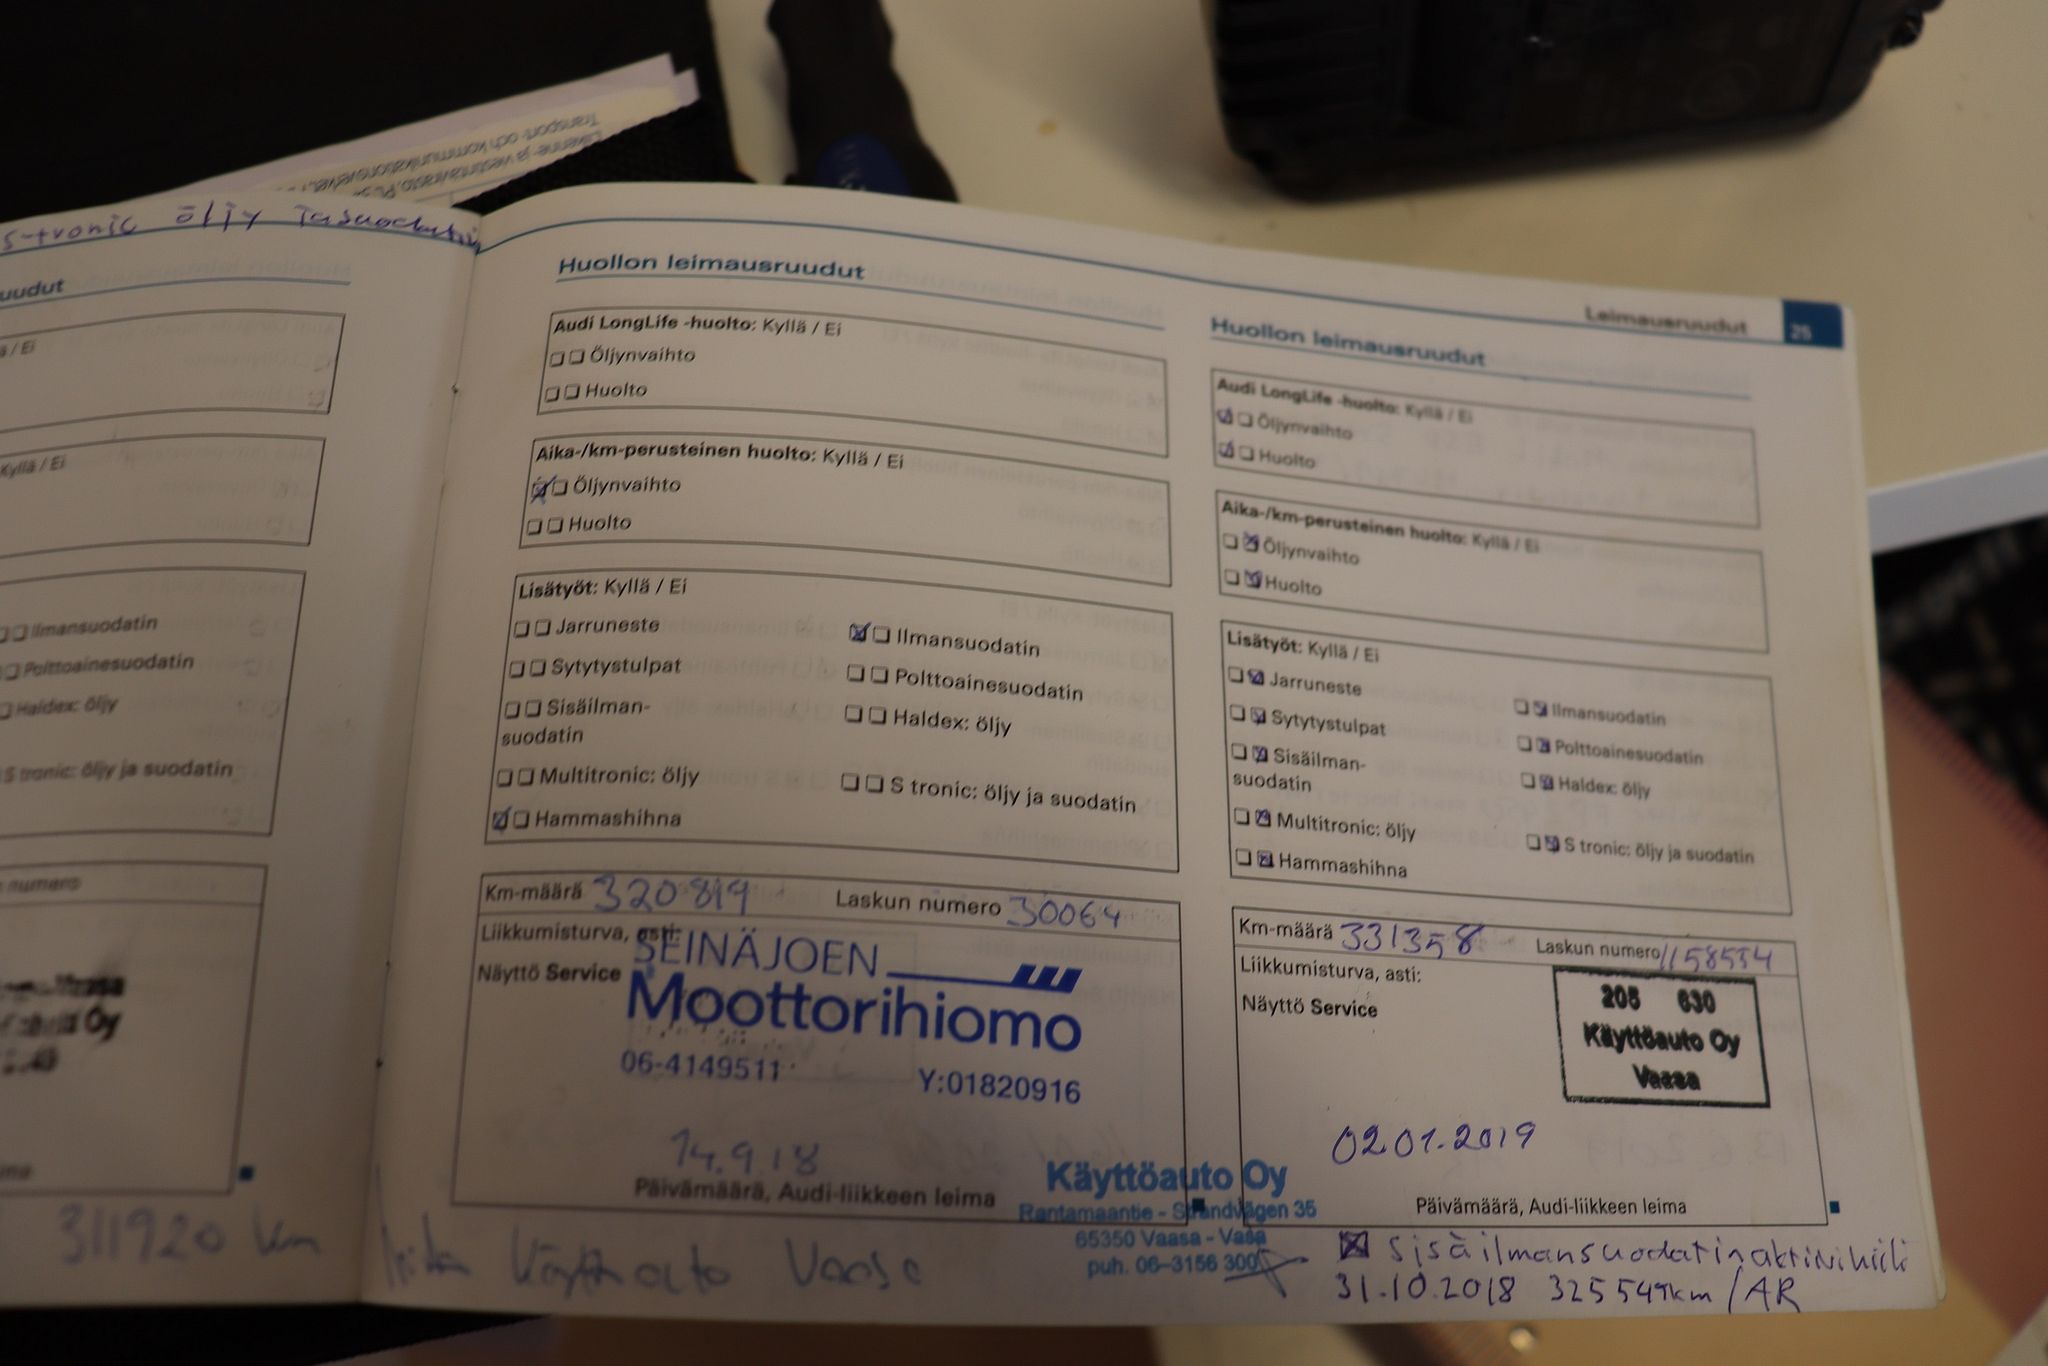 Transport- och kommunikationsverket,
s-tronic öljy ja suodatin
/ Ei
Kyllä / Ei
Ilmansuodatin
Polttoainesuodatin
Haldex: öljy
S tronic: öljy ja suodatin
numero
Oy
311920 km
Huollon leimausruudut
Audi LongLife -huolto: Kyllä / Ei
Öljynvaihto
Huolto
Aika-/km-perusteinen huolto: Kyllä / Ei
Öljynvaihto
Huolto
Lisätyöt: Kyllä / Ei
Jarruneste
Ilmansuodatin
Sytytystulpat
Polttoainesuodatin
Sisäilman-
suodatin
Haldex: öljy
Multitronic: öljy
S tronic: öljy ja suodatin
Hammashihna
Km-määrä 320819 Laskun numero 30064
Liikkumisturva, asti:
Näyttö Service
SEINÄJOEN
Moottorihiomo
06-4149511 Y:01820916
14.9.18
Päivämäärä, Audi-liikkeen leima
Vaasa
Käyttöauto Oy
Rantamaantie - Strandvägen 35
65350 Vaasa - Vasa
puh. 06-3156 300
Leimausruudut 25
Huollon leimausruudut
Audi LongLife -huolto: Kyllä / Ei
Öljynvaihto
Huolto
Aika-/km-perusteinen huolto: Kyllä / Ei
Öljynvaihto
Huolto
Lisätyöt: Kyllä / Ei
Jarruneste
Ilmansuodatin
Sytytystulpat
Polttoainesuodatin
Sisäilman-
suodatin
Haldex: öljy
Multitronic: öljy
S tronic: öljy ja suodatin
Hammashihna
Km-määrä 331358 Laskun numero 1158554
Liikkumisturva, asti:
Näyttö Service
205 630
Käyttöauto Oy
Vaasa
02.01.2019
Päivämäärä, Audi-liikkeen leima
sisäilmansuodatin aktiivihiili
31.10.2018 325549km /AR